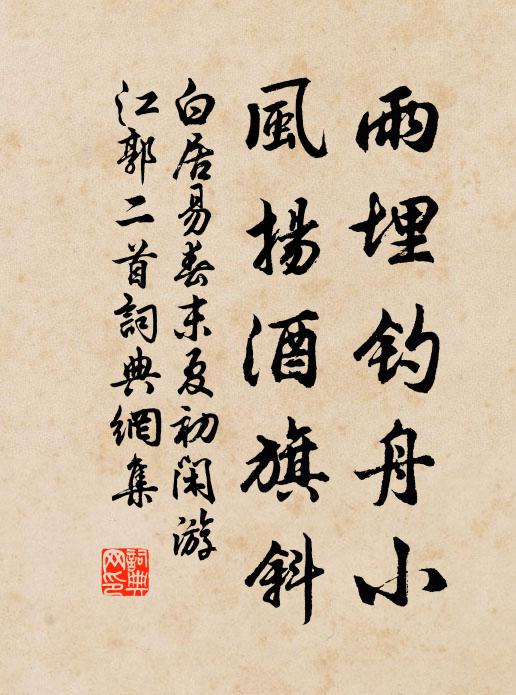 雨埋钓舟小
風揚酒旗斜
白居易春末夏初闲游
江郭二首詞典網集
詞典網印